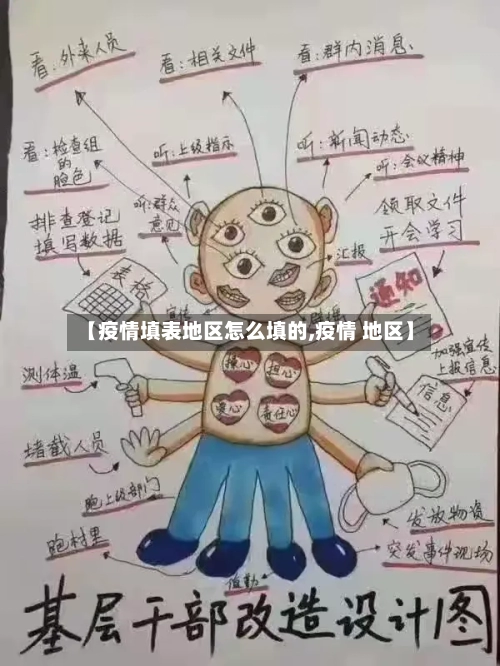 看:外来人员
看:相关文件
看:群内消息
看:检查组
的
脸色
听:上级指示
听:新闻动态
听:会议精神
听:群众
意见
领取文件
开会学习
排查登记
填写数据
汇报
表格
通知
宣传
【疫情填表地区怎么填的,疫情 地区】
测体温
操心
担心
爱心
责任心
加强宣传
上报信息
信息
堵截人员
跑上级部门
发放物资
跑村里
突发事件现场
值勤
基层干部改造设计图